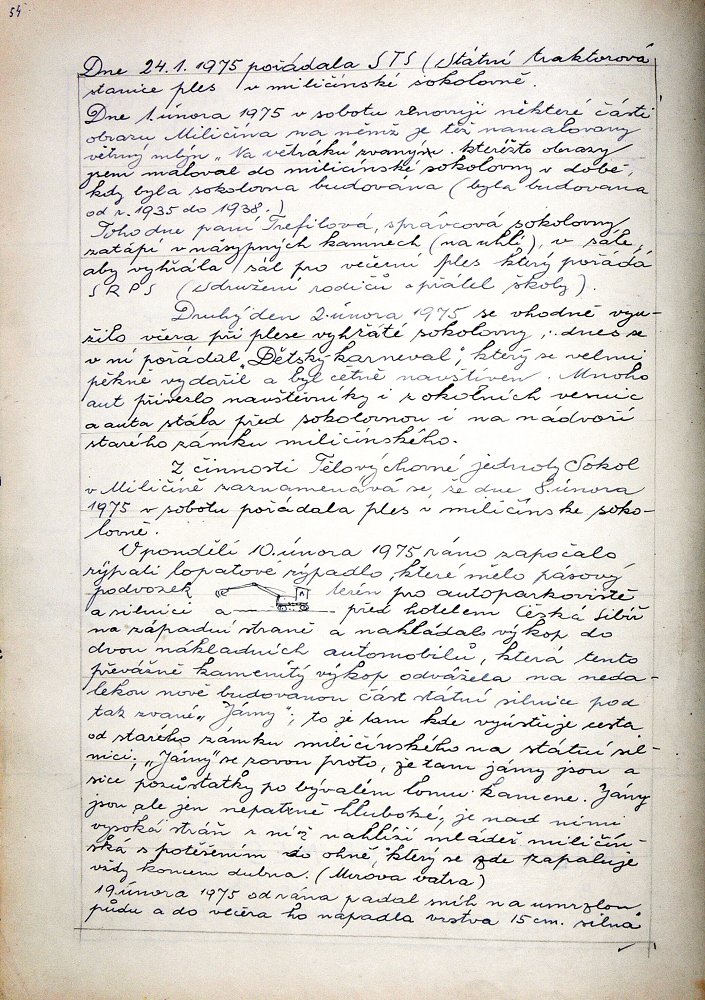 54
Dne 24.1.1975 pořádala STS (Státní traktorová
stanice ples v miličínské sokolovně.
Dne 1. února 1975 v sobotu renovuji některé části
obrazu Miličína na němž je též namalovaný
větrný mlýn „Na větráků zvaným. kteréžto obrazy
jsem maloval do miličínské sokolovny v době,
kdy byla sokolovna budována (byla budována
od r. 1935 do 1938.)
Toho dne paní Trefilová, správcová sokolovny
zatápí v násypných kamnech (na uhlí), v sále,
aby vyhřála sál pro večerní ples který pořádá
SRPS (Sdružení rodičů a přátel školy).
Druhý den 2. února 1975 se vhodně vyu-
žilo včera při plese vyhřáté sokolovny, : dnes se
v ní pořádal „Dětský karneval", který se velmi
pěkně vydařil a byl četně navštíven. Mnoho
aut přivezlo návštěvníky i z okolních vesnic
a auta stála před sokolovnou i na nádvoří
starého zámku miličínského.
Z činnosti Tělovýchovné jednoty Sokol
v Miličíně zaznamenává se, že dne 8. února
1975 v sobotu pořádala ples v miličínské soko-
lovně.
V pondělí 10. února 1975 ráno započalo
rýpati lopatové rýpadlo, které mělo pásový
podvozek terén pro autoparkoviště
a silnici a před hotelem Česká Sibiř
na západní straně a nakládalo výkop do
dvou nákladních automobilů, která tento
převážně kamenitý výkop odvážela na neda-
lekou nově budovanou část státní silnice pod
tak zvané „Jámy", to je tam kde vyúsťuje cesta
od starého zámku miličínského na státní sil-
nici; „Jámy" se zovou proto, že tam jámy jsou a
sice pozůstatky po bývalém lomu kamene. Jámy
jsou ale jen nepatrně hluboké, je nad nimi
vysoká stráň z níž nahlíží mládež miličín-
ská s potěšením do ohně, který se zde zapaluje
vždy koncem dubna. (Mírová vatra)
19. února 1975 od rána padal sníh na umrzlou
půdu a do večera ho napadla vrstva 15 cm. silná